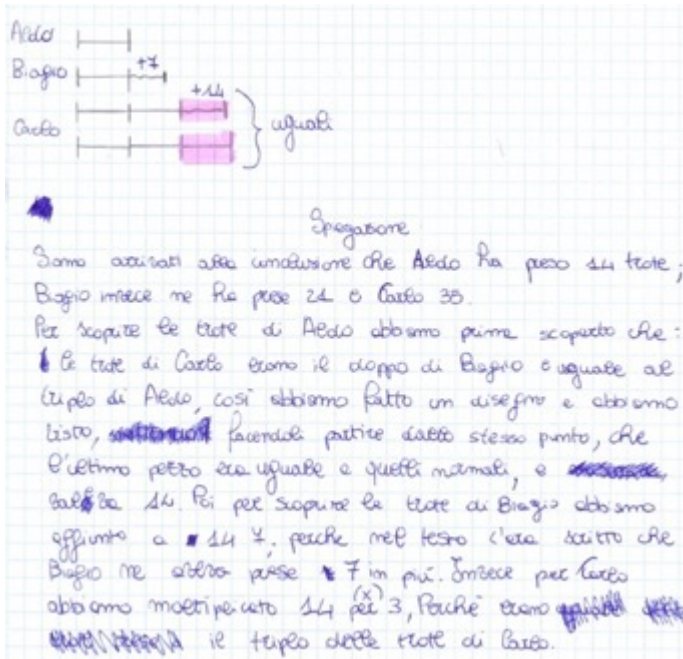 Aldo
Biagio +7
+14
Carlo uguali
Spiegazione
Siamo arrivati alla conclusione che Aldo ha preso 14 trote;
Biagio invece ne ha prese 21 e Carlo 35.
Per scoprire le trote di Aldo abbiamo prima scoperto che:
le trote di Carlo erano il doppo di Biagio e uguale al
triplo di Aldo, così abbiamo fatto un disegno e abbiamo
visto, facendoli partire dallo stesso punto, che
l'ultimo pezzo era uguale a quelli normali, e
valeva 14. Poi per scoprire le trote di Biagio abbiamo
aggiunto a 14 7, perche nel testo c'era scritto che
Biagio ne aveva prese 7 in più. Invece per Carlo
abbiamo moltiplicato 14 per (x) 3, Perché erano
il triplo delle trote di Carlo.